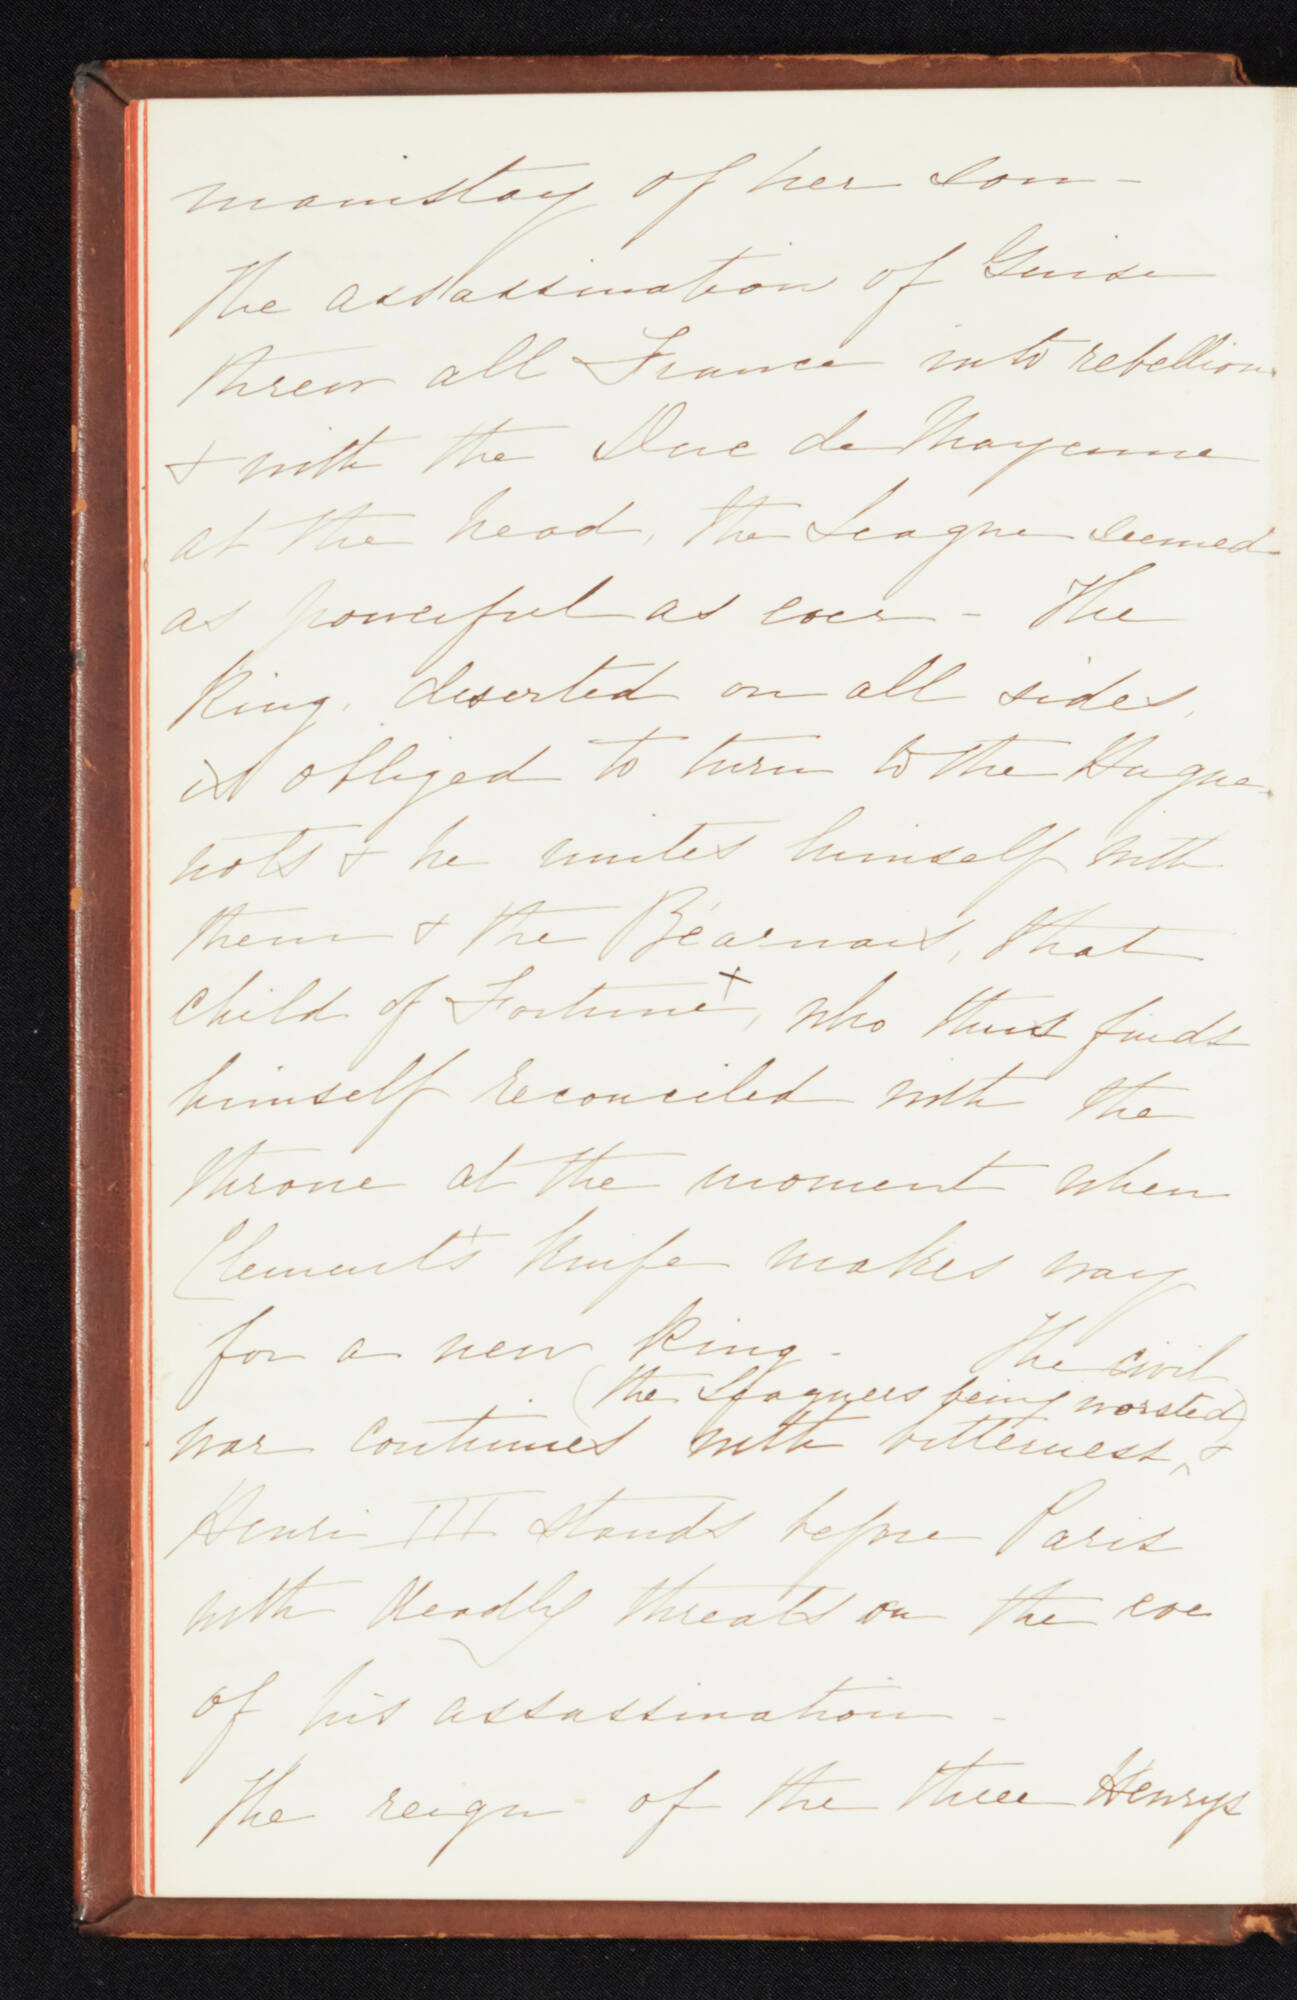 mainstay of her son –
The assassination of Guise
threw all France into rebellion
& with the Duc de Mayenne
at the head, the League seemed
as powerful as ever – The
King, deserted on all sides,
is obliged to turn to the Hugue-
nots & he unites himself with
them & the Béarnais, that
child of Fortune+, who thus finds
himself reconciled with the
throne at the moment when
Clement's+ knife makes way
for a new King – The civil
(the Leaguers being worsted)
war continues with bitterness, ^ &
Henri III stands before Paris
with deadly threats on the eve
of his assassination –
The reign of the three Henrys